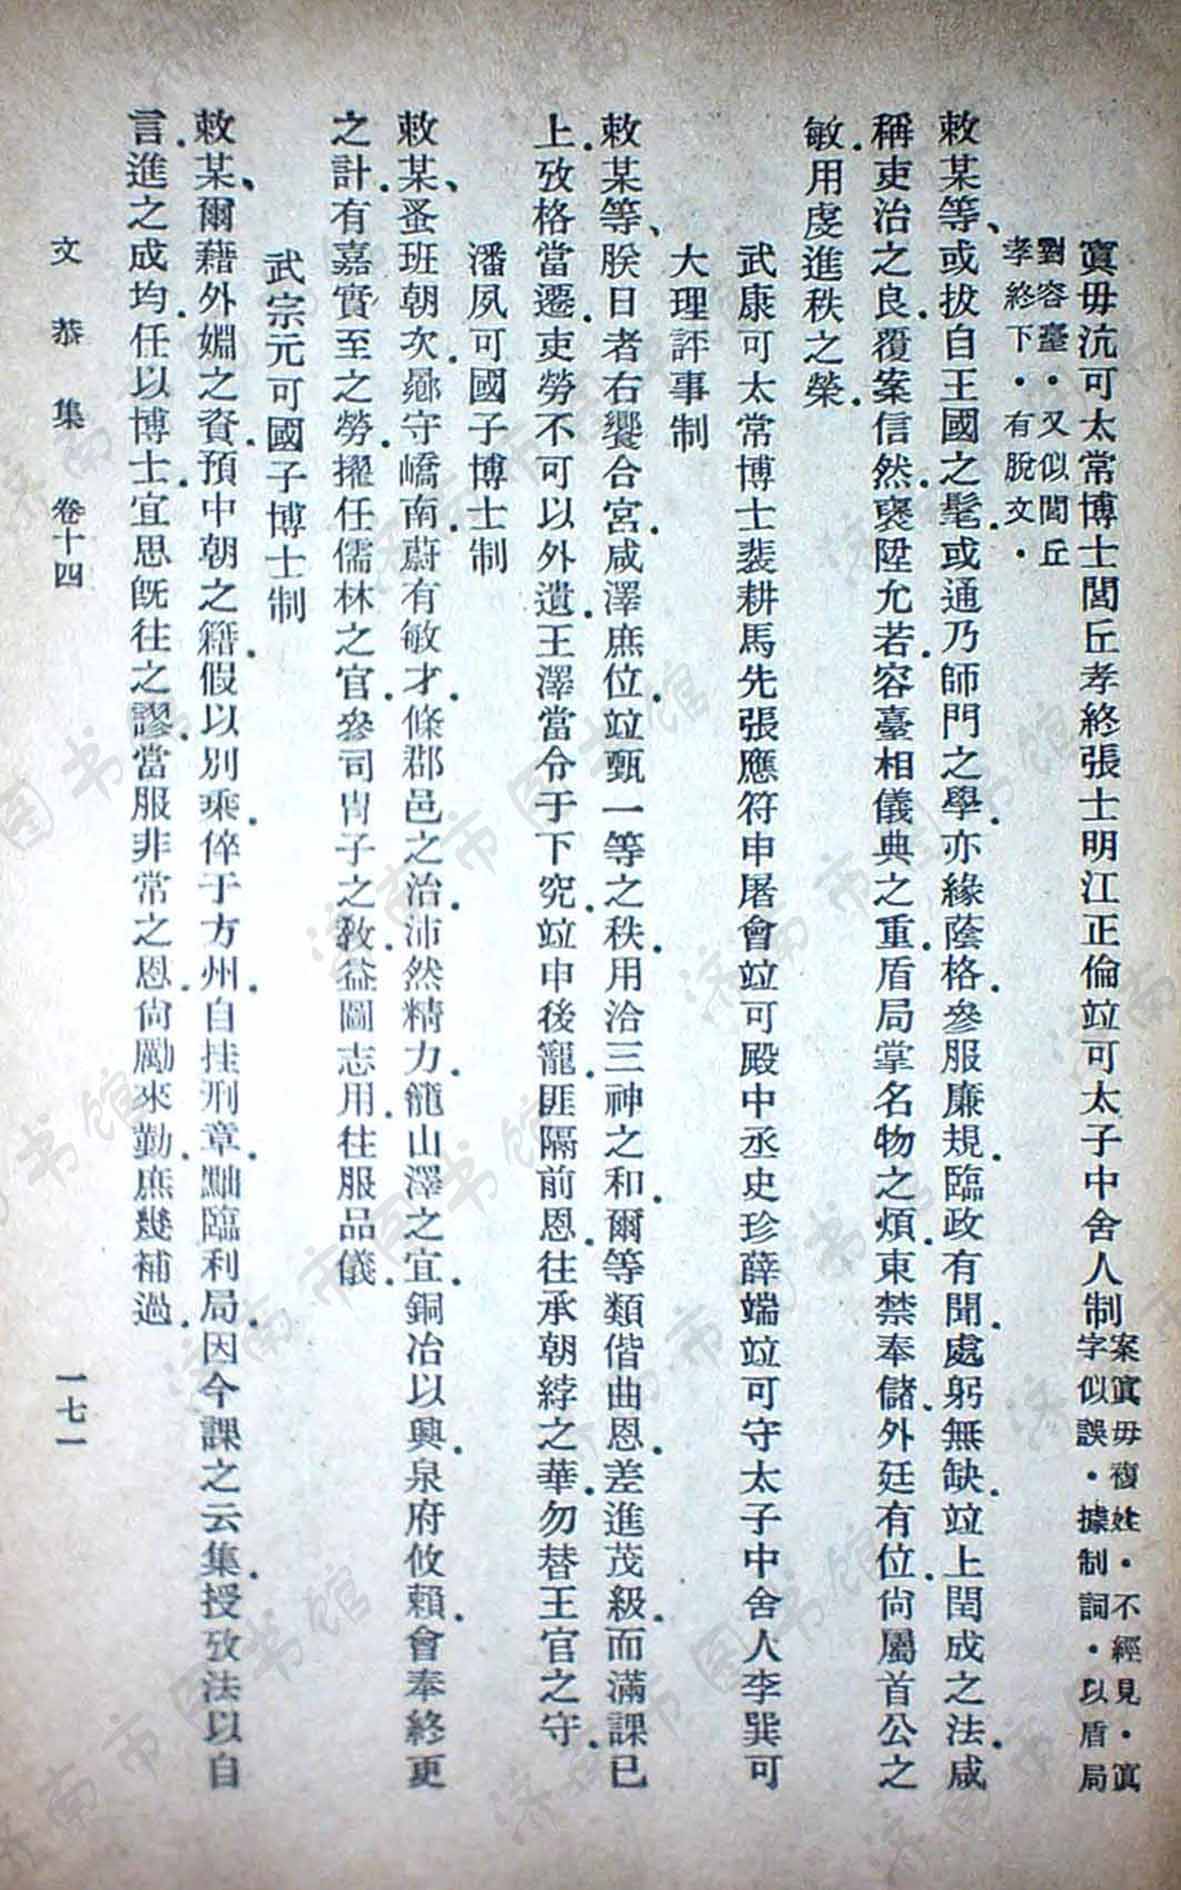 寘毋沆可太常博士閭丘孝終張士明江正倫竝可太子中舍人制案寘毋複姓·不經見·寘
字似誤·據制詞·以盾局
對容臺·又似閭丘
孝終下·有脫文·
敕某等、或拔自王國之髦.或通乃師門之學.亦緣蔭格.參服廉規.臨政有聞.處躬無缺.竝上閏成之法.咸
稱吏治之良.覆案信然.襃陞允若.容臺相儀典之重.盾局掌名物之煩.東禁奉儲.外廷有位.尙屬首公之
敏.用虔進秩之榮.
武康可太常博士裴耕馬先張應符申屠會竝可殿中丞史珍薛端竝可守太子中舍人李巽可
大理評事制
敕某等、朕日者右饗合宮.咸澤庶位.竝甄一等之秩.用洽三神之和.爾等類偕曲恩.差進茂級.而滿課已
上.攷格當遷.吏勞不可以外遺.王澤當令于下究.竝申後寵.匪隔前恩.往承朝綍之華.勿替王官之守.
潘夙可國子博士制
敕某、蚤班朝次.曏守嶠南.蔚有敏才.條郡邑之治.沛然精力.籠山澤之宜.銅冶以興.泉府攸賴.會奉終更
之計.有嘉實至之勞.擢任儒林之官.參司胄子之敎.益圖志用.往服品儀.
武宗元可國子博士制
敕某、爾藉外婣之資.預中朝之籍.假以別乘.倅于方州.自挂刑章.黜臨利局.因今課之云集.授攷法以自
言.進之成均.任以博士.宜思旣往之謬.當服非常之恩.尙勵來勤.庶幾補過.
文恭集 卷十四 一七一